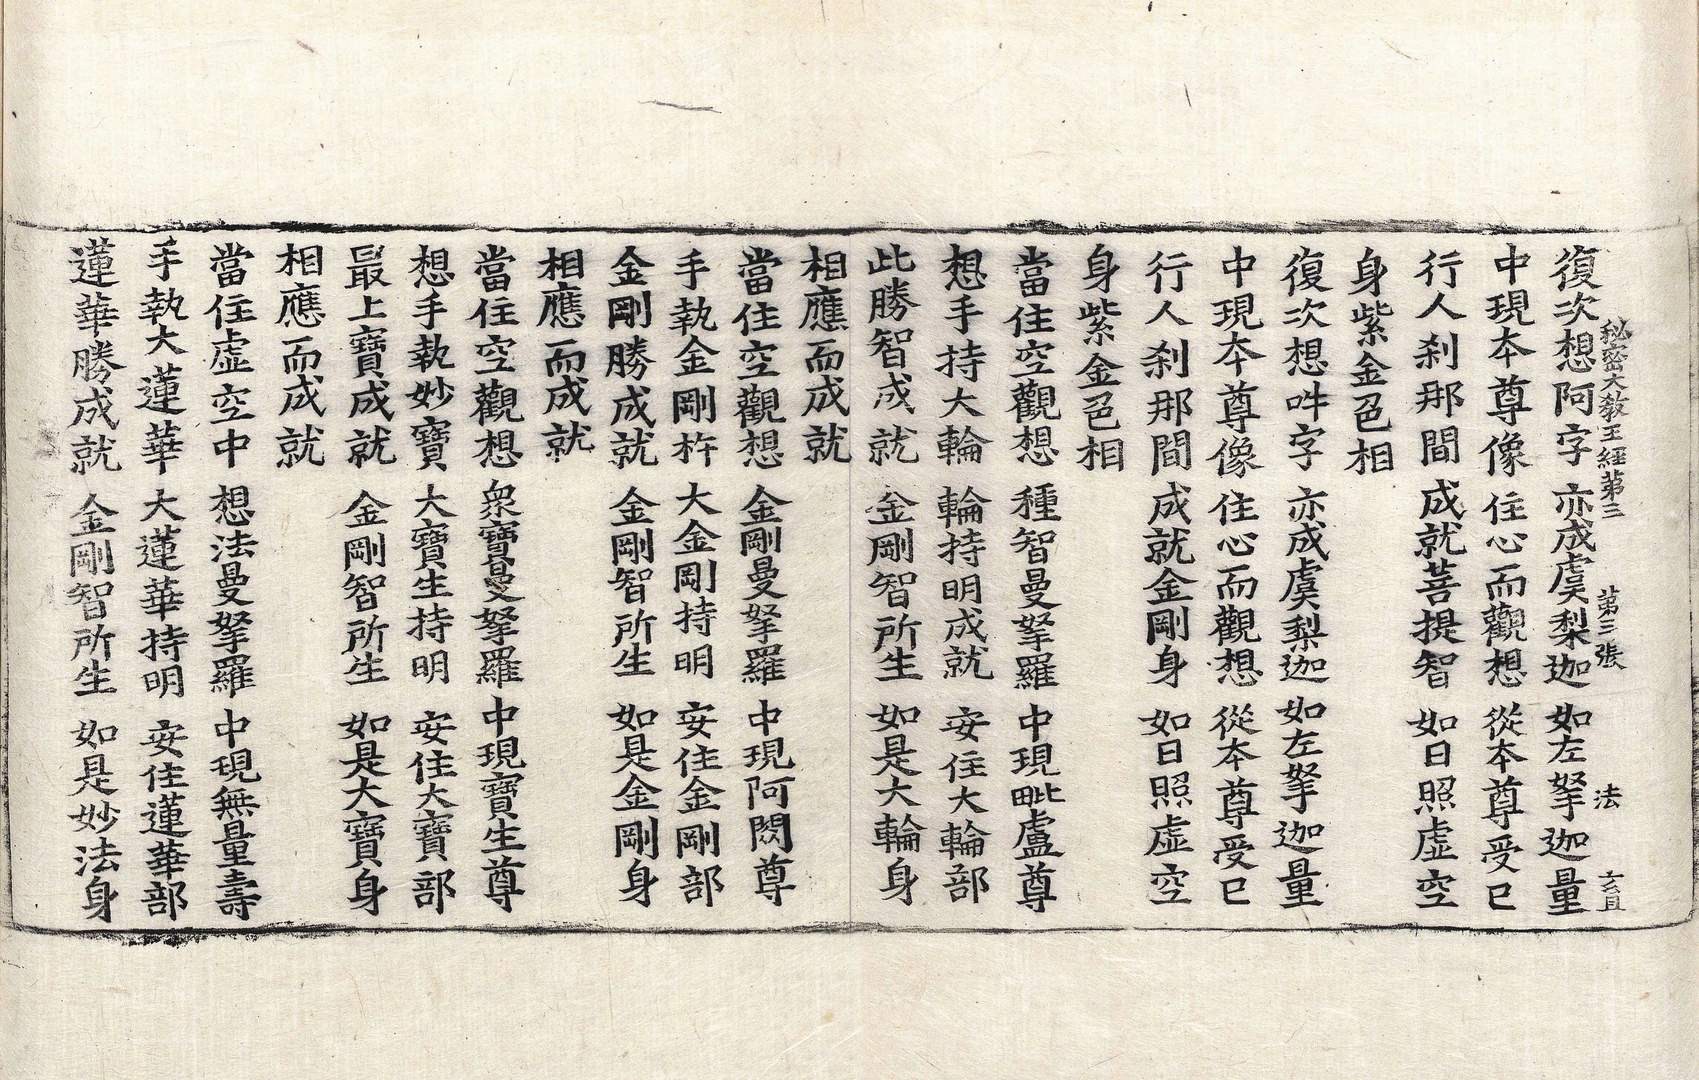 秘密大教王經第三　第三張　法
復次想阿字　亦成虞梨迦　如左拏迦量
中現本尊像　住心而觀想　從本尊受已
行人刹那間　成就菩提智　如日照虛空
身紫金色相
復次想吽字　亦成虞梨迦　如左拏迦量
中現本尊像　住心而觀想　從本尊受已
行人刹那間　成就金剛身　如日照虛空
身紫金色相
當住空觀想　種智曼拏羅　中現毗盧尊
想手持大輪　輪持明成就　安住大輪部
此勝智成就　金剛智所生　如是大輪身
相應而成就
當住空觀想　金剛曼拏羅　中現阿閦尊
手執金剛杵　大金剛持明　安住金剛部
金剛勝成就　金剛智所生　如是金剛身
相應而成就
當住空觀想　衆寶曼拏羅　中現寶生尊
想手執妙寶　大寶生持明　安住大寶部
最上寶成就　金剛智所生　如是大寶身
相應而成就
當住虛空中　想法曼拏羅　中現無量壽
手執大蓮華　大蓮華持明　安住蓮華部
蓮華勝成就　金剛智所生　如是妙法身